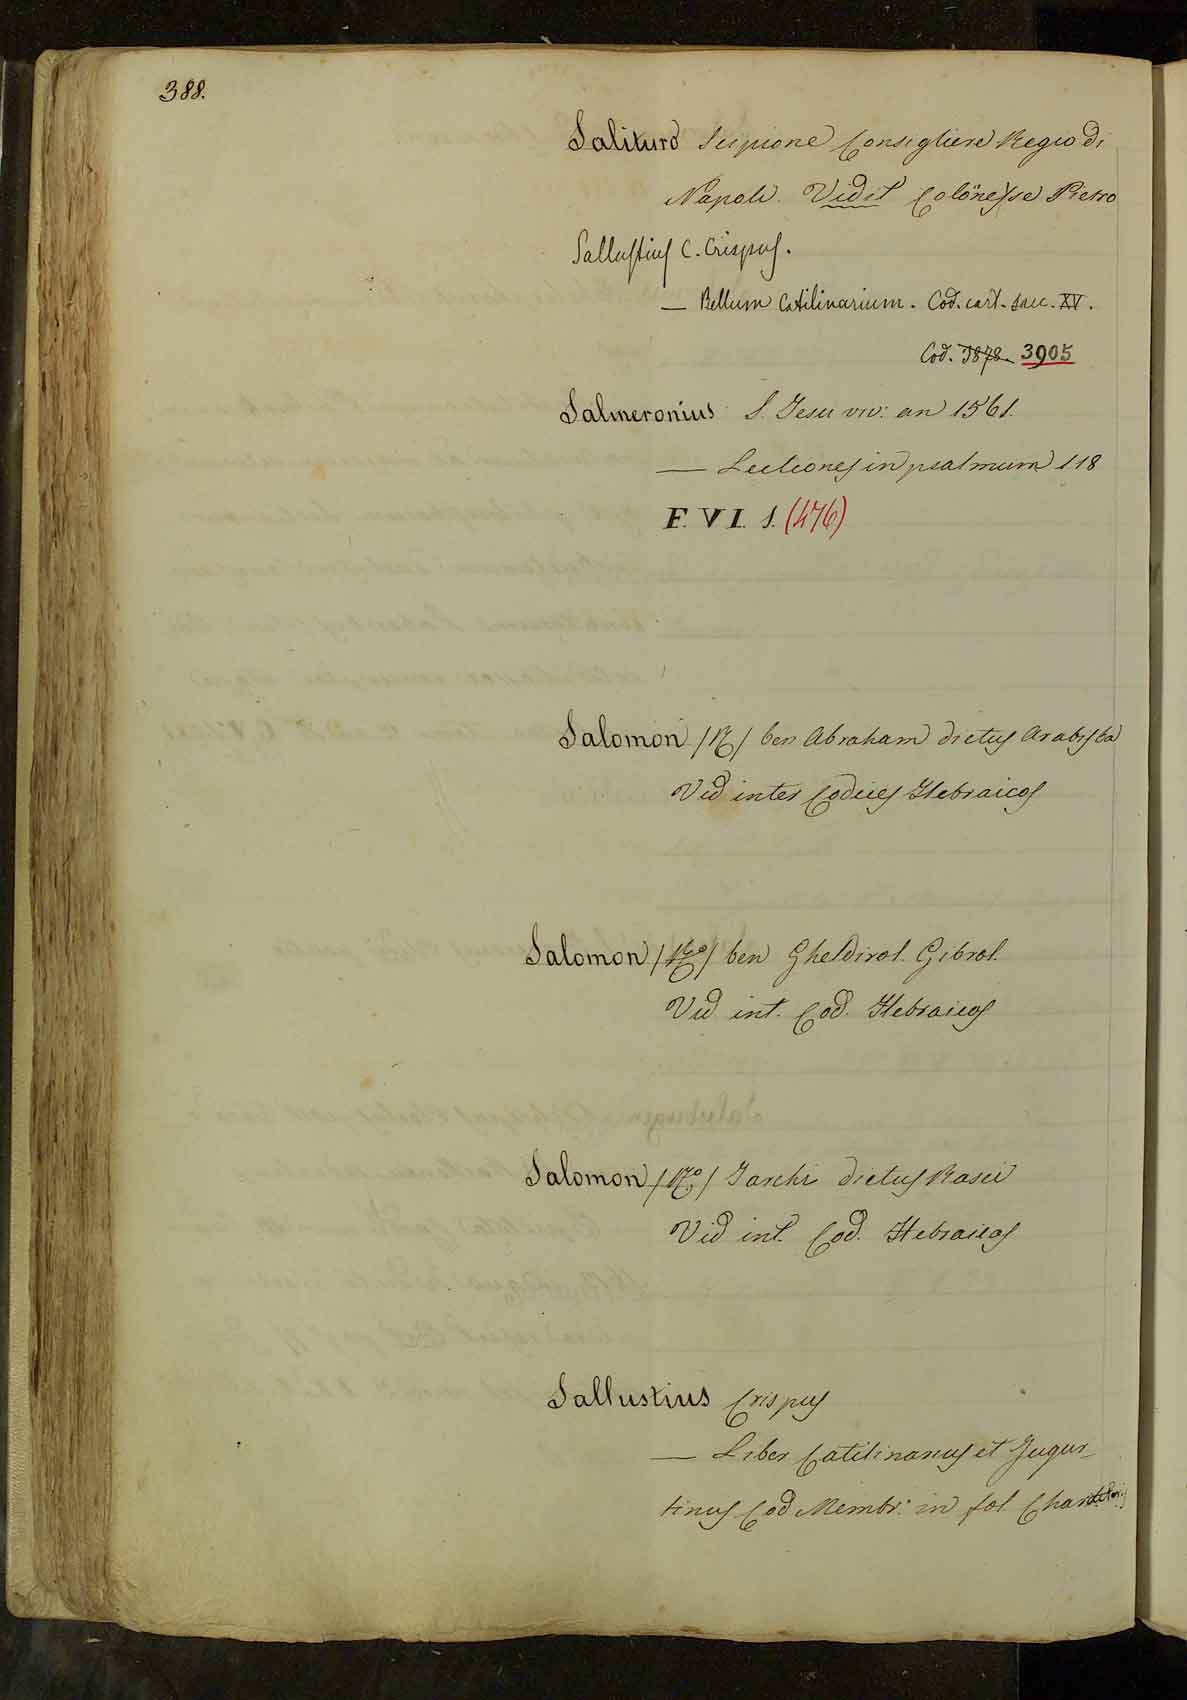 388.
Salituro Scipione Consigliere Regio di
Napoli. Vidit Colonesse Pietro
Sallustius C. Crispus.
— Bellum Catilinarium. Cod. cart. saec. XV.
Cod. 3878. 3905
Salmeronius S. Jesu viv: an 1561.
— Lectiones in psalmum 118
F. VI. 1. (476)
Salomon /R/ ben Abraham dictus Arabista
Vid inter Codices Hebraicos
Salomon /Rº/ ben Gheldirol. Gibrol.
Vid int. Cod. Hebraicos
Salomon /Rº/ Jarchi dictus Rasci
Vid int. Cod. Hebraicos
Sallustius Crispus
— Liber Catilinarius et Jugur-
tinus Cod Membr: in fol.